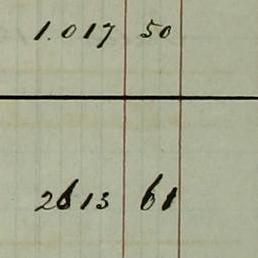 1.017 50
2613 61